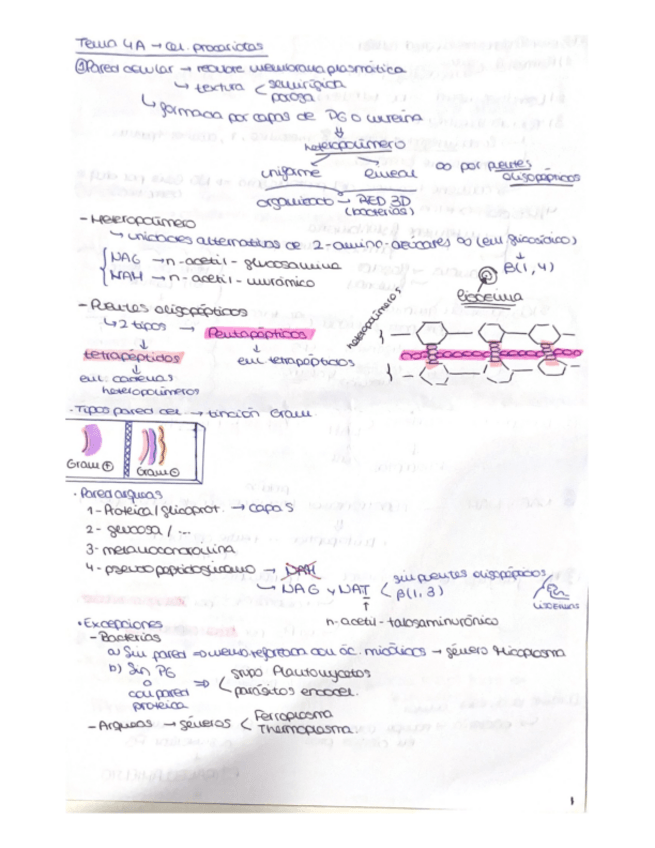 Tema 4A → cel. procariotas
① Pared celular → recubre membrana plasmática
↳ textura < semirrígida
porosa
↳ formada por capas de PG o mureína
⇓
heteropolímero
uniforme lineal ∞ por puentes
oligopéptidos
organizado → RED 3D
(bacterias)
- Heteropolímero
↳ unidades alternativas de 2-amino-azúcares ∞ (enl glicosídico)
NAG → n-acetil-glucosamina β(1,4)
NAM → n-acetil-murámico
Lisozima
- Puentes oligopéptidos
↳ 2 tipos → Pentapéptidos
heteropolímeros
tetrapéptidos enl tetrapéptidos
enl cadenas
heteropolímeros
· Tipos pared cel. → tinción Gram
Gram ⊕ Gram ⊖
· Pared arqueas
1- Proteica/glicoprot. → capa S
2- glucosa / ...
3- metanocondroitina
4- pseudopeptidoglicano → NAM
↳ NAG y NAT < sin puentes oligopéptidos
β(1,3)
lisozimas
n-acetil-talosaminurónico
· Excepciones
- Bacterias
a) Sin pared ⇒ memb reforzada con ác. micólicos → género Micoplasma
b) Sin PG
o
con pared
proteica
⇒ < grupo Planctomycetos
parásitos endocel.
- Arqueas → géneros < Ferroplasma
Thermoplasma
1